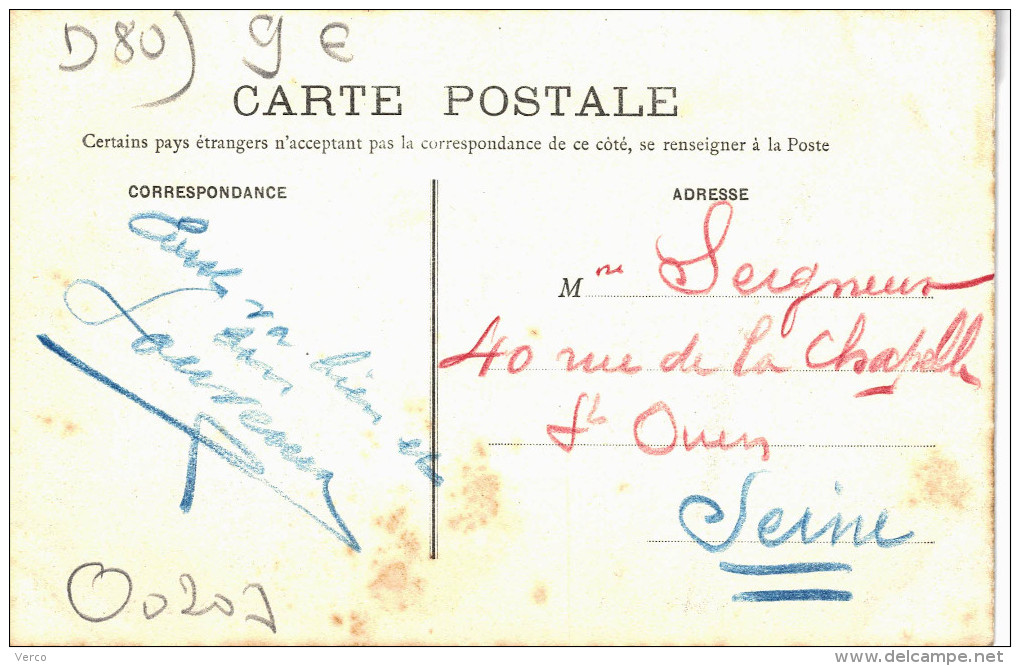 D80) 9 €
CARTE POSTALE
Certains pays étrangers n'acceptant pas la correspondance de ce côté, se renseigner à la Poste
CORRESPONDANCE
va bien et
ADRESSE
Mme Seigneur
40 rue de la Chapelle
St Ouen
Seine
O0207
Verco
www.delcampe.net